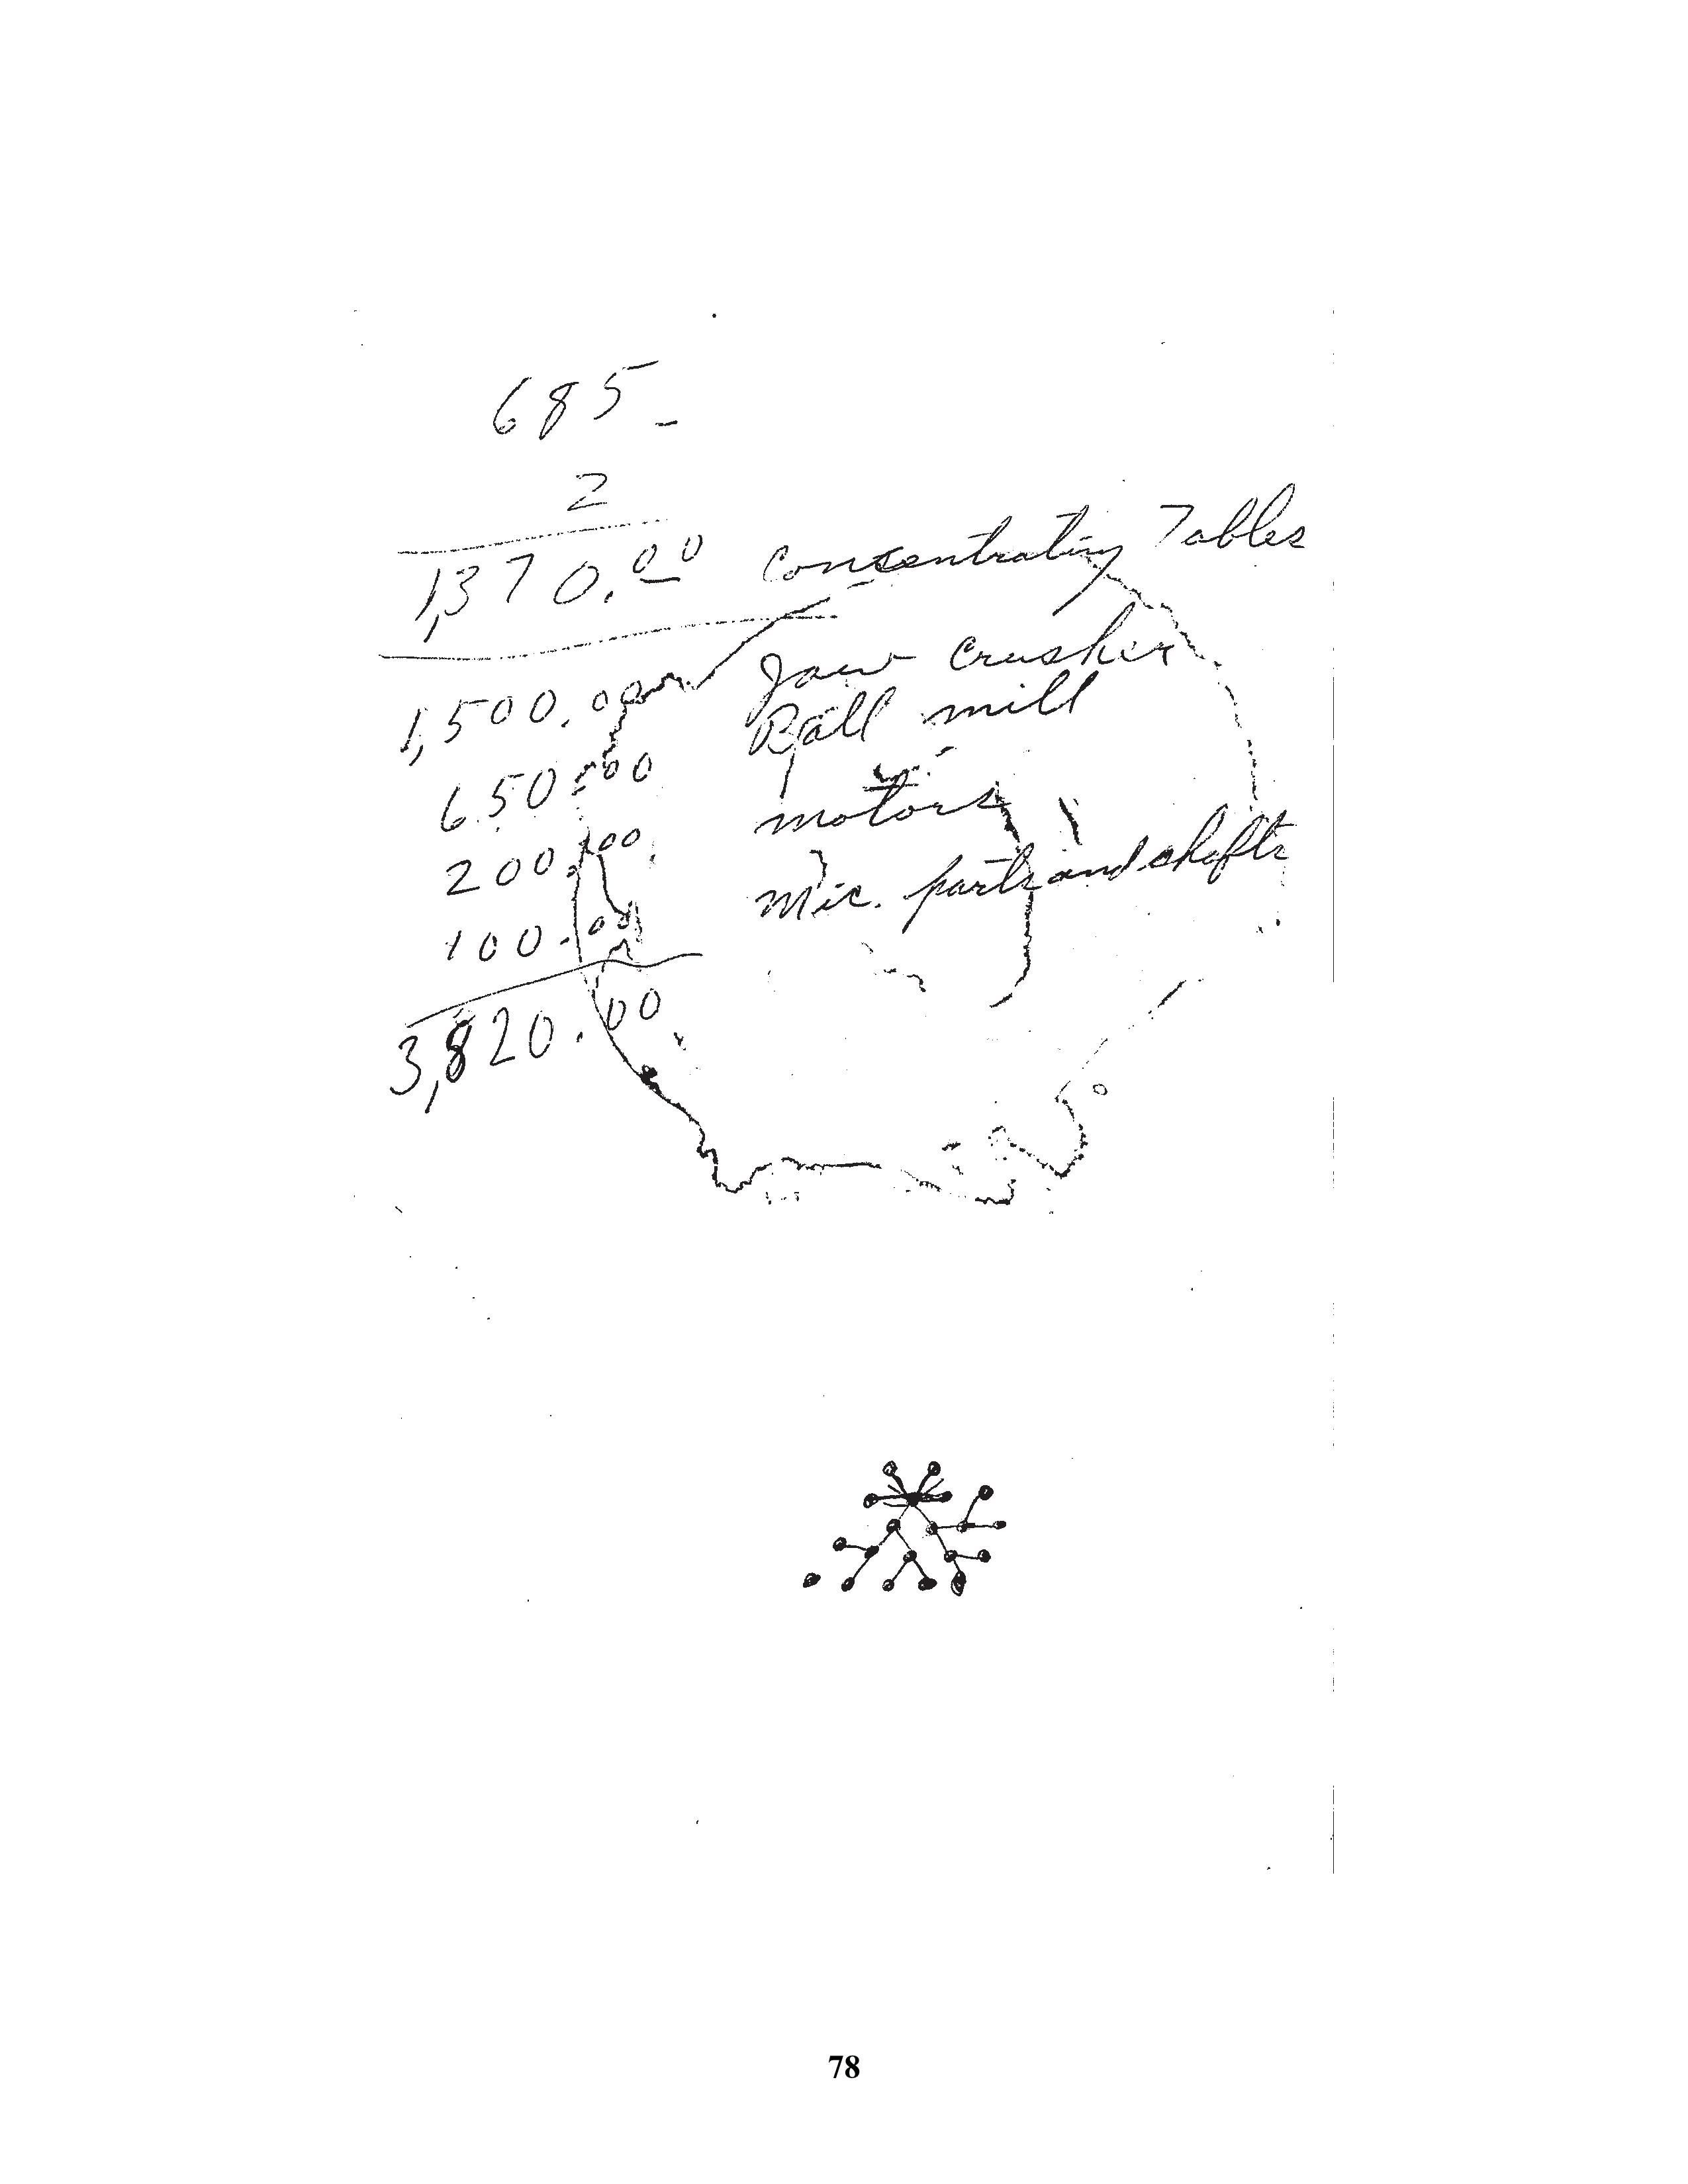 685-
2
1,370.00 Concentrating Tables
1,500.00 Jaw Crusher
650.00 Ball mill
200.00 motors
100.00 Mic. parts and shafts
3,820.00
78